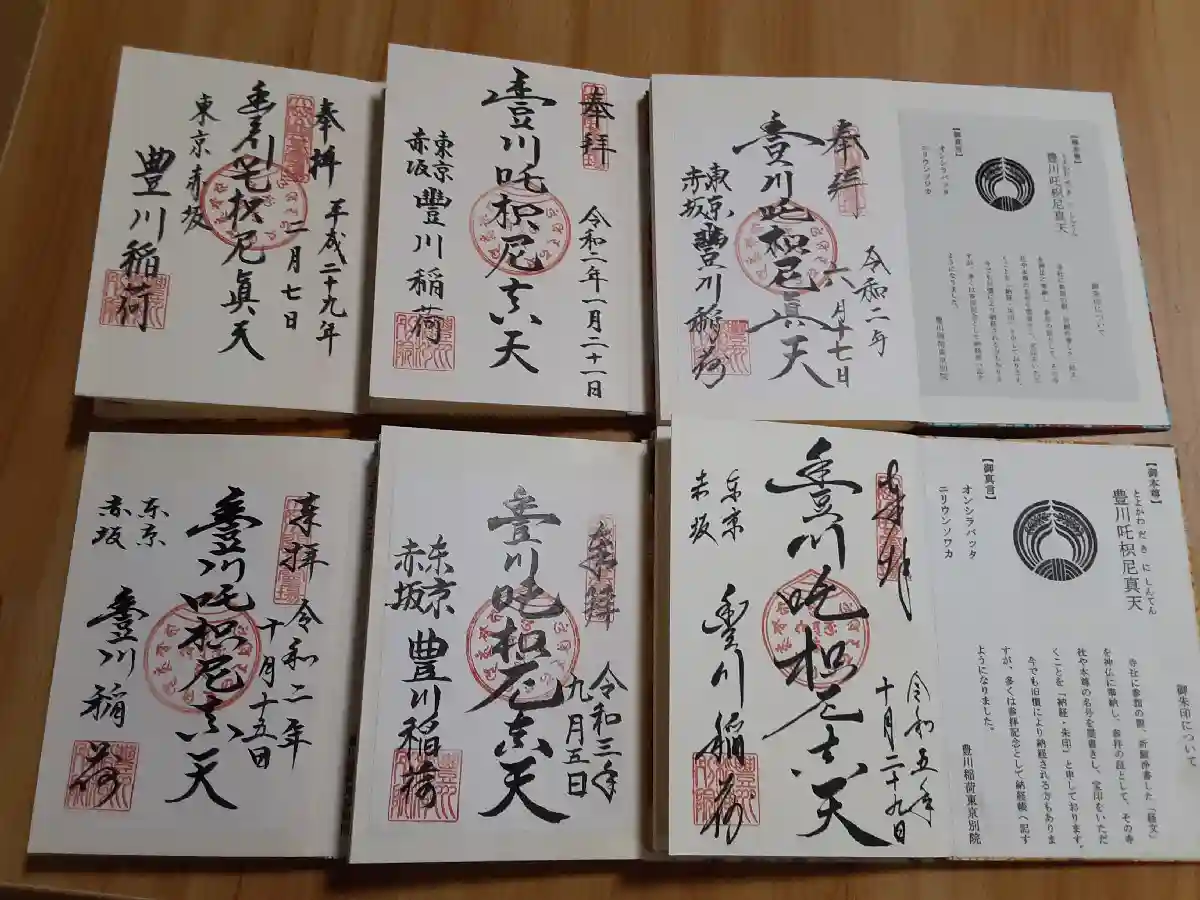 奉拝
平成二十九年
二月七日
豊川吒枳尼眞天
東京赤坂
豊川稲荷
奉拝
令和二年一月二十一日
豐川吒枳尼真天
東京
赤坂
豐川稲荷
奉拝
令和二年
六月十七日
豐川吒枳尼眞天
東京
赤坂
豐川稲荷
【御本尊】
とよかわ だ き に しんてん
豊川吒枳尼真天
【御真言】
オンシラバッタ
ニリウンソワカ
御朱印について
豊川稲荷東京別院
奉拝
令和二年
十月十五日
豐川吒枳尼真天
東京
赤坂
豐川稲荷
奉拝
令和三年
九月五日
豐川吒枳尼真天
東京
赤坂
豊川稲荷
奉拝
令和五年
十月二十九日
豐川吒枳尼真天
東京
赤坂
豐川稲荷
【御本尊】
とよかわ だ き に しんてん
豊川吒枳尼真天
【御真言】
オンシラバッタ
ニリウンソワカ
御朱印について
寺社に参詣の際、祈願浄書した「経文」
を神仏に奉納し、参拝の証として、その寺
社や本尊の名号を墨書きし、宝印をいただ
くことを「納経・朱印」と申しております。
今でも旧慣により納経される方もありま
すが、多くは参拝記念として納経帳へ記す
ようになりました。
豊川稲荷東京別院